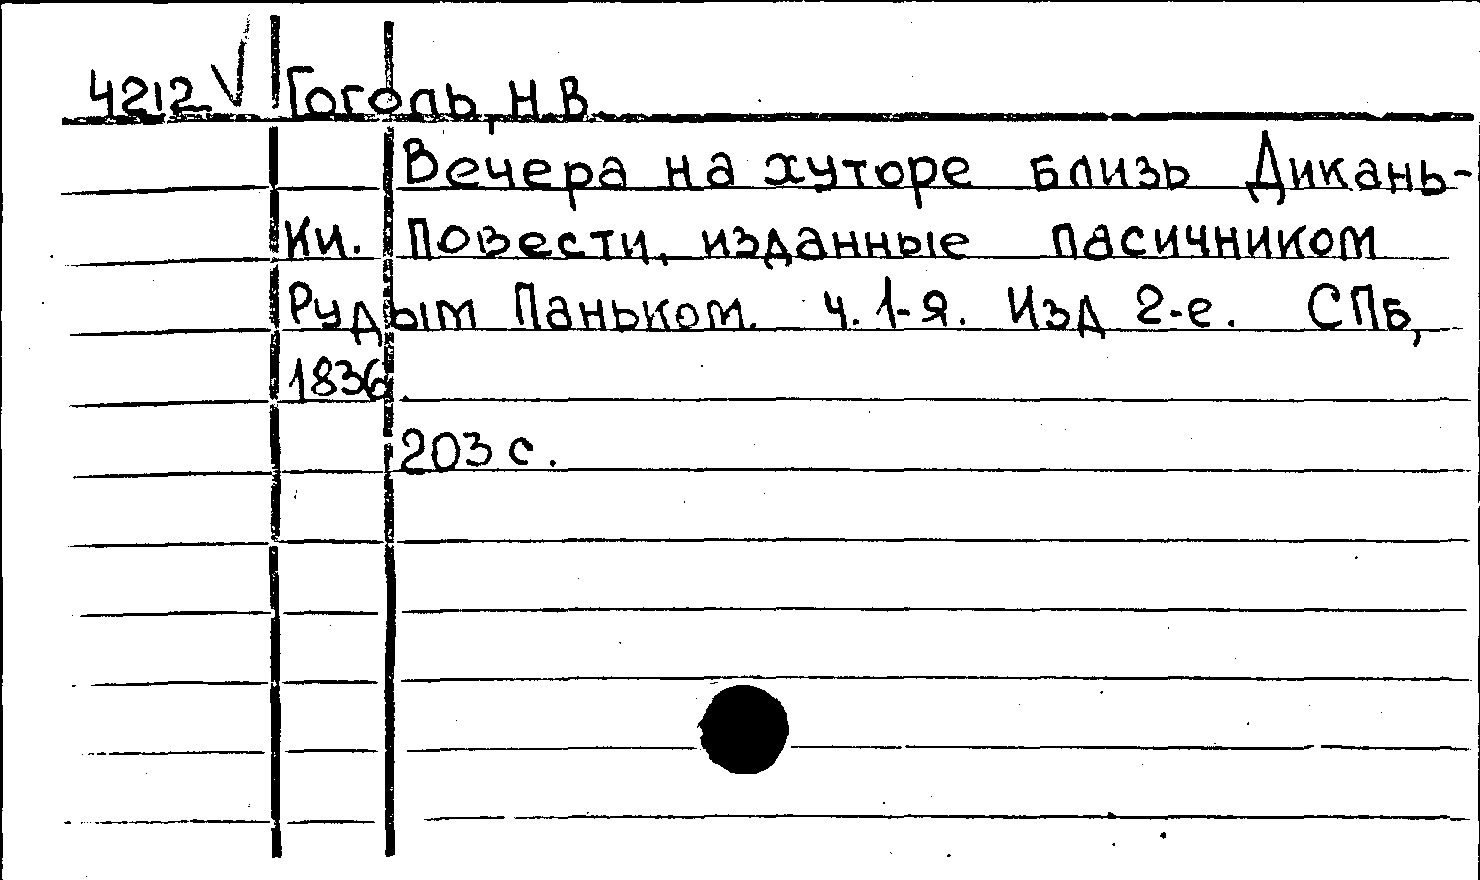 4212 V Гоголь, Н.В.
Вечера на хуторе близь Дикань-
ки. Повести, изданные пасичником
Рудым Паньком. ч. 1-я. Изд 2-е. СПб,
1836.
203 с.